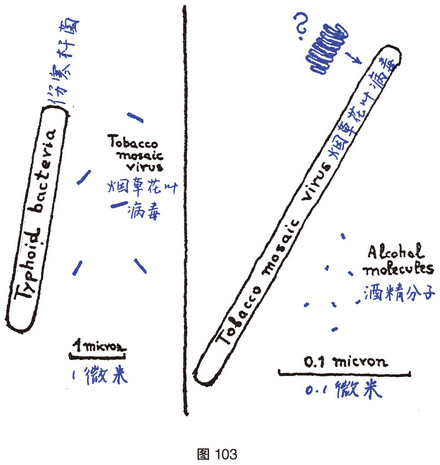 伤寒杆菌
Typhoid bacteria
Tobacco
mosaic
virus
烟草花叶
病毒
1 micron
1 微米
?
Tobacco mosaic virus 烟草花叶病毒
Alcohol
molecules
酒精分子
0.1 micron
0.1 微米
图 103